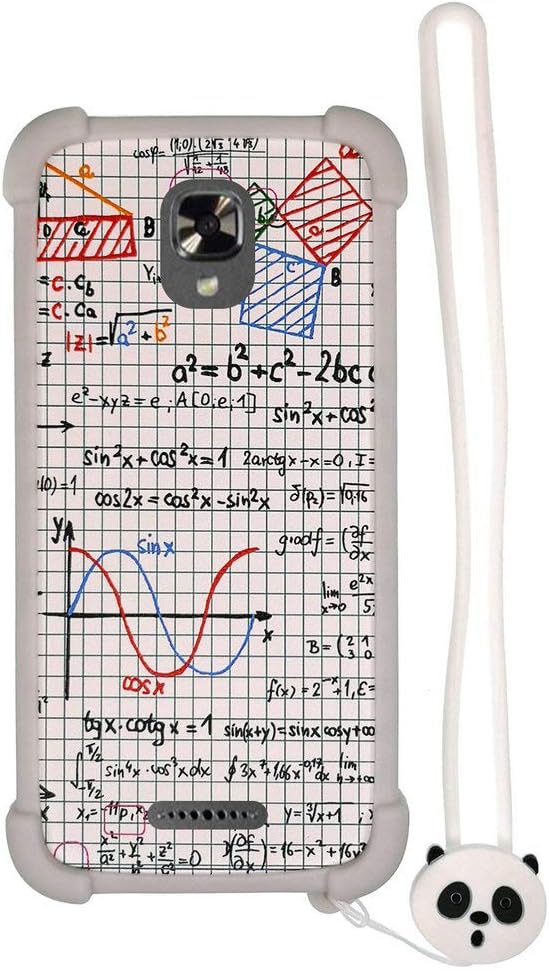 cosφ= (1,0)·(2√3 14√3)
a
b
a
D a B
c
B
=c·Cb
=c·Ca
Yi
|z|=√a²+b²
z
a²=b²+c²-2bc c
e²-xyz=e; A[0;e;1]
sin²x+cos²
sin²x+cos²x=1 2arctgx-x=0, I=
(0)=1
cos2x=cos²x-sin²x δ(ρ₂)=√0,16
y
sinx
gradf=(∂f/∂x
lim x→0 e^2x/5
x
B=(2 1 3 0
cosx
f(x)=2^-x+1, ε=
tgx·cotgx=1 sin(x+y)=sinx cosy+co
∫ π/2 -π/2 sin⁴x·cos³xdx ∮3x²+1,66x^-0,17 dx lim n→∞
x₁=-11p
y=³√x+1;
x²/a²+y²/b²+z²/c²=0 (∂f/∂x)=16-x²+16y²